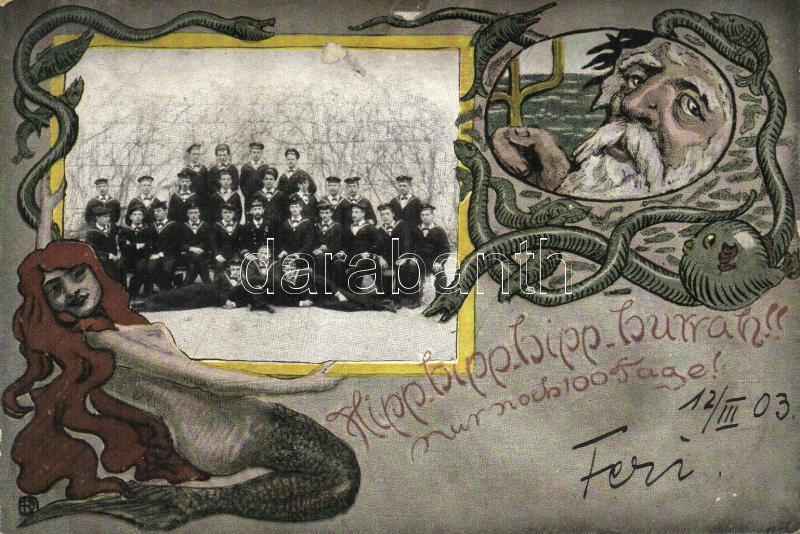 darabanth
Hipp-hipp-hipp-hurrah!!
nur noch 100 Tage!
12/III 03.
Feri.